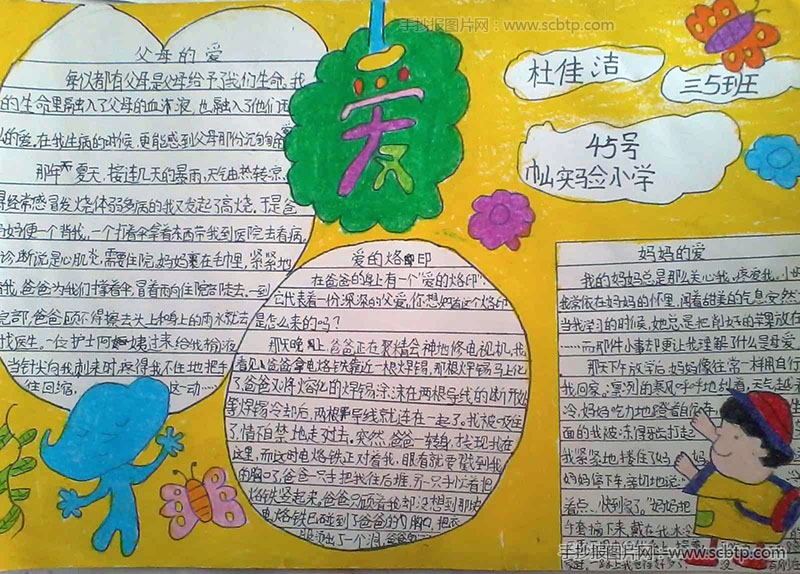 手抄报图片网:www.scbtp.com
父母的爱
每个人都有父母是父母给予了我们生命.我
的生命里融入了父母的血液,也融入了他们
的爱,在我生病的时候,更能感到父母那份
那年夏天,接连几天的暴雨,天气由热转凉,
经常感冒发烧体弱多病的我又发起了高烧,于是爸
妈便一个背我,一个打着伞拿着东西带我到医院去看病,
诊断说是心肌炎,需要住院,妈妈裹在毛巾里,紧紧地
我,爸爸为我们撑着伞冒着雨向住院部走去,一到
院部,爸爸顾不得擦去头上和身上的雨水就去
找医生,一位护士阿姨过来给我输液
当针尖向我刺来时,疼得我不住地把手
往回缩,
这一动……
爱
杜佳洁
三5班
45号
实验小学
爱的烙印
在爸爸的身上有一个"爱的烙印".
它代表着一份深深的父爱,你想知道这个烙印
是怎么来的吗?
那天晚上,爸爸正在聚精会神地修电视机,我
看见爸爸拿电烙铁靠近一根焊锡,那根焊锡马上化
了,爸爸又将熔化的焊锡涂沫在两根导线的断开处
等焊锡冷却后,两根导线就连在一起了,我被吸住
了,情不自禁地走过去,突然,爸爸一转身,发现我在
这里,而这时电烙铁正对着我,眼看就要戳到我
的胸口了,爸爸一只手把我往后推,另一只手忙着把
烙铁紧起来,爸爸只顾着我却没想到那
电烙铁已碰到了爸爸的胸口,把衣
服烫出了一个洞,爸爸
妈妈的爱
我的妈妈总是那么关心我,疼爱我,小
我依偎在妈妈的怀里,闻着甜美的气息安然
当我学习的时候,她总是把削好的苹果放在
……而那件小事却更让我理解了什么是母爱
那天下午放学后妈妈像往常一样用自行
我回家,凛冽的寒风呼呼地刮着,天气
冷,妈妈吃力地蹬着自行车
面的我被冻得牙齿打起
我紧紧地搂住了妈
妈妈停下车亲切地
着点、快到家了,"妈妈把
手套摘下来,戴在我
手抄报图片网:www.scbtp.com